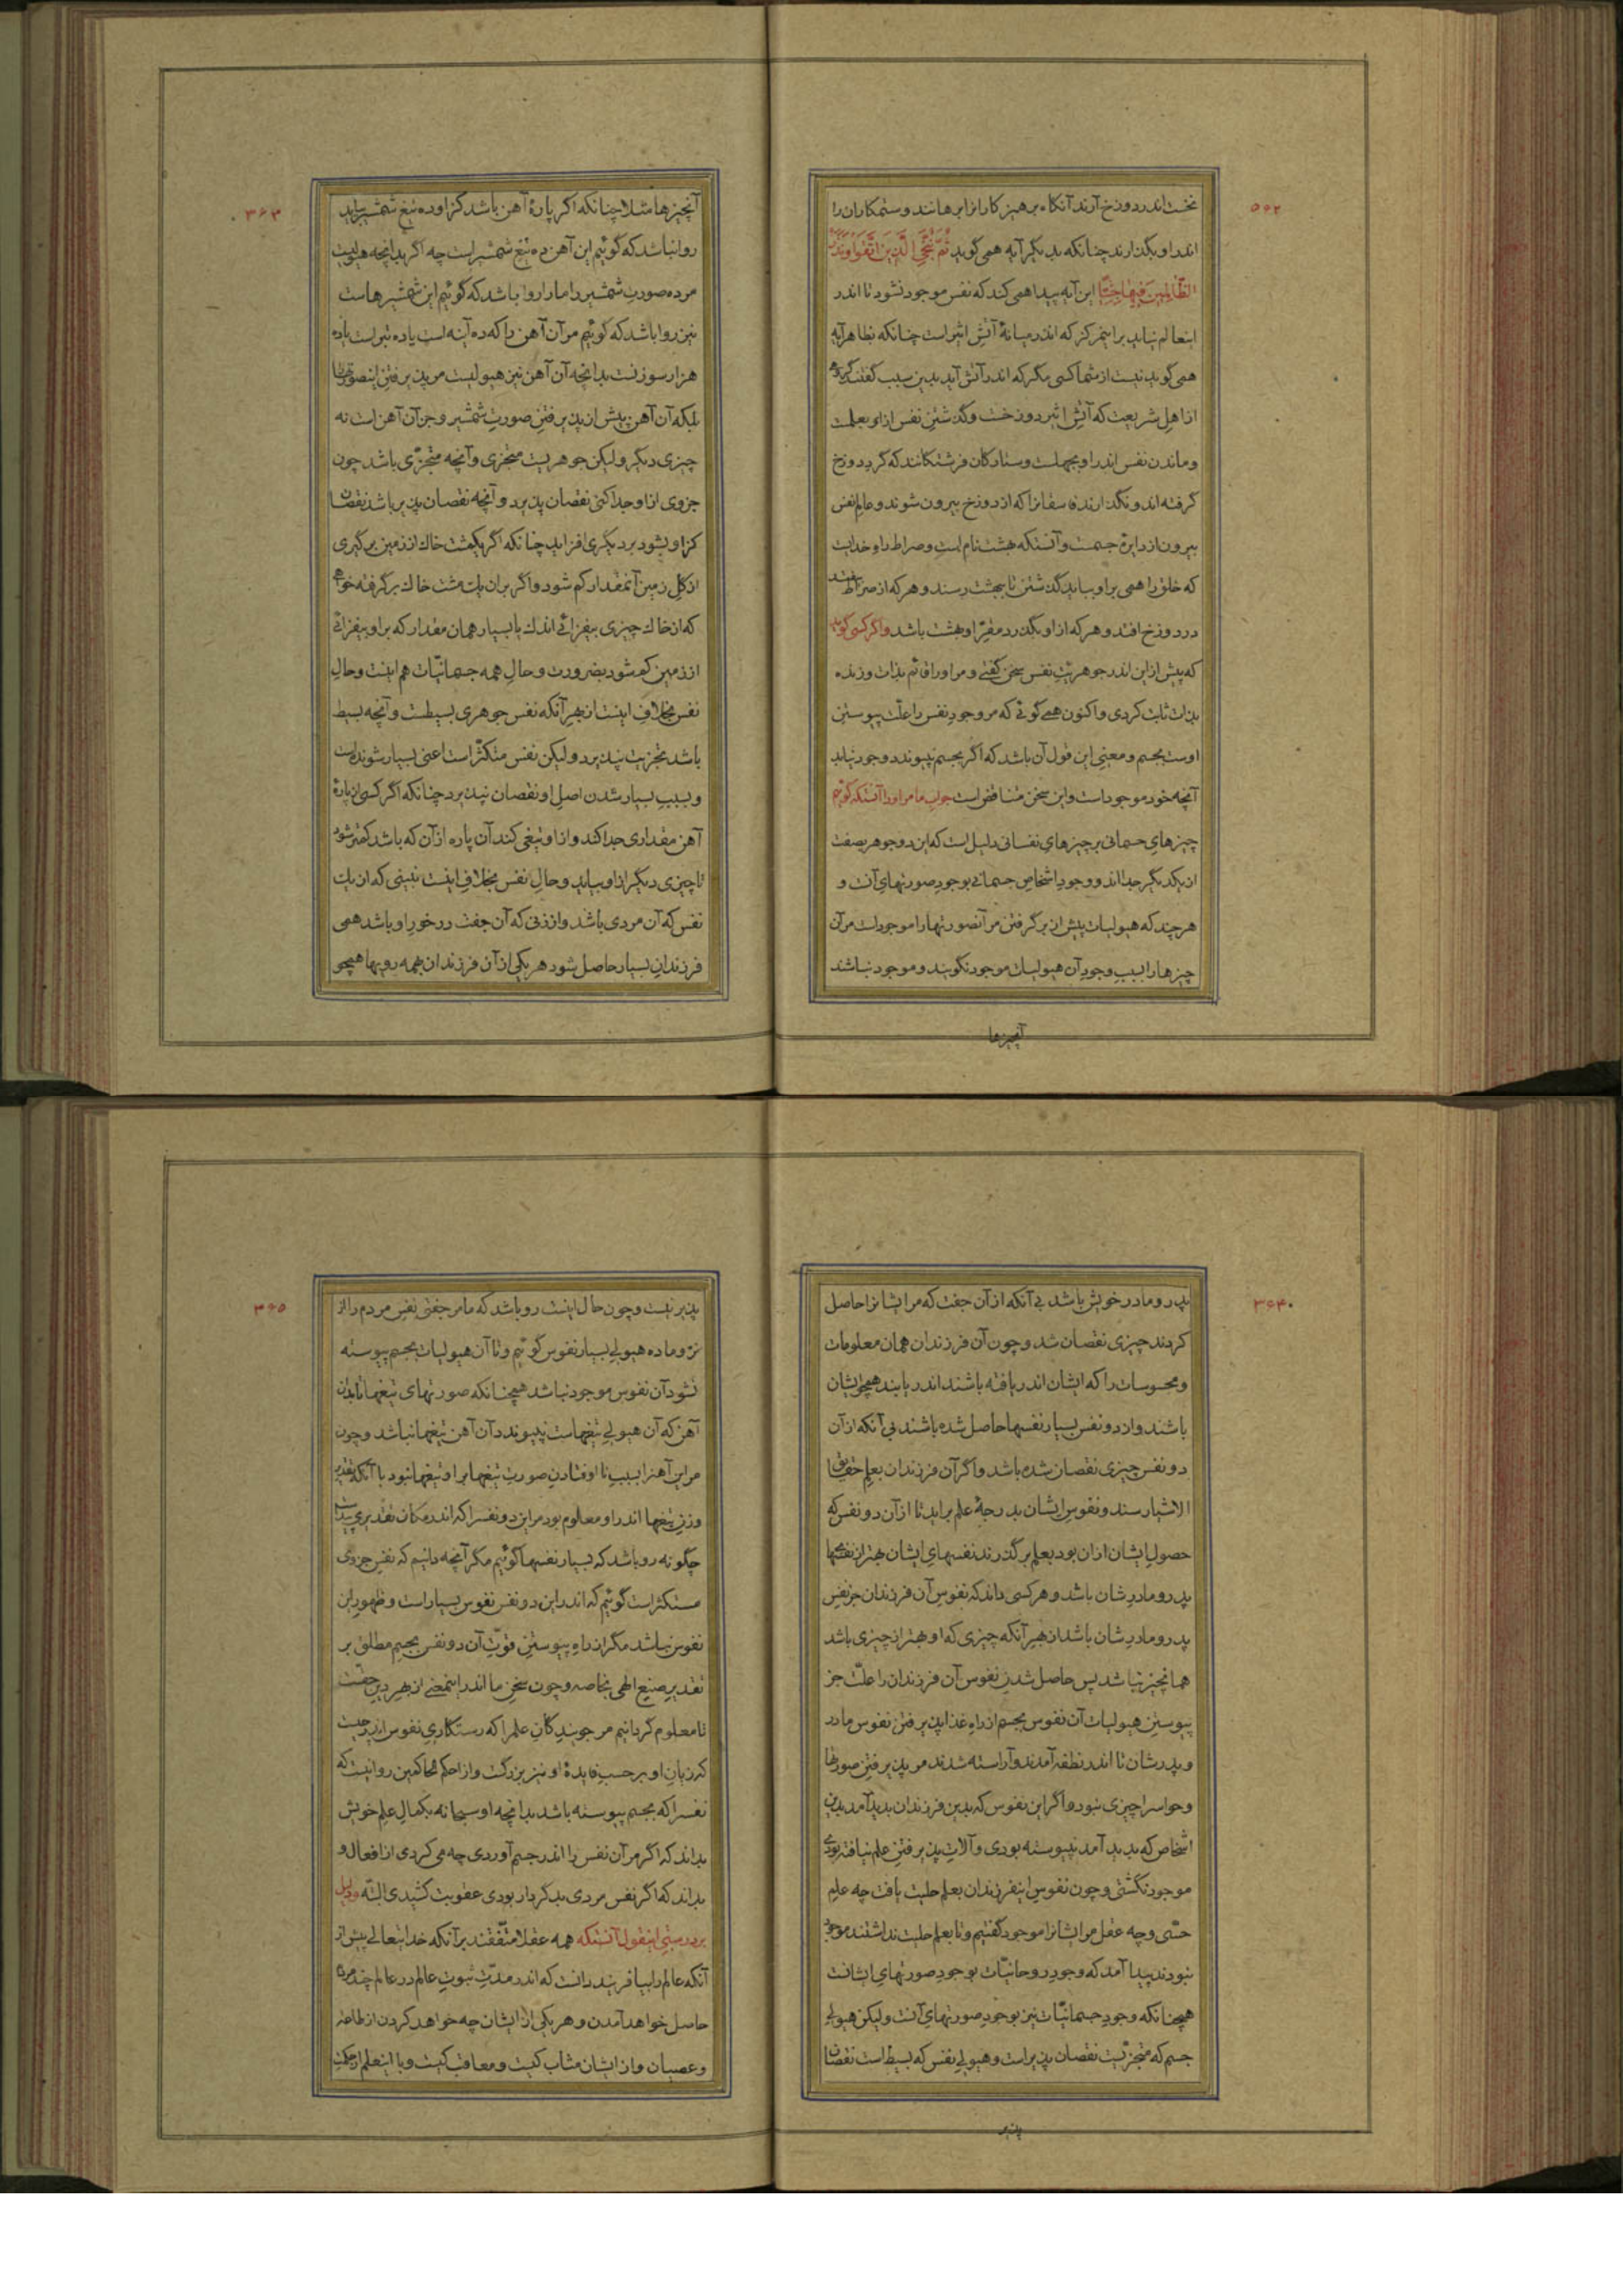 ۵۶۲
نخست اندر دوزخ آرند آنکاه پرهیز کارانرا برهانند و ستمکاران را
اندر او بگذارند چنانکه بدیگر آیه همی گوید ثُمَّ نُنَجِّی الَّذِینَ اتَّقَوا وَنَذَرُ
الظّالِمِینَ فِیهَا جِثِیّاً این آیه پیدا همی کند که نفس موجود نشود تا اندر
اینعالم نیاید بر اینمرکز که اندر میانهٔ آتش اثیر است چنانکه بظاهر آیه
همی گوید نیست از شما کسی مگر که اندر آتش آید بدین سبب گفتند گروهی
از اهل شریعت که آتش اثیر دوزخست و گذشتن نفس از او بعلمست
و ماندن نفس اندر او بجهلست و ستارکان فرشتکانند که گرد دوزخ
گرفته اند و نگذارند فاسقانرا که از دوزخ بیرون شوند و عالم نفس
بیرون از دایرهٔ جسمست و آنستکه بهشت نام است و صراط راه خدایست
که خلق را همی بر او بباید گذشتن تا ببهشت رسند و هر که از صراط بیفتد
در دوزخ افتد و هر که از او بگذرد مقرّ او بهشت باشد واگر کسی گوید
که پیش از این اندر جوهریّت نفس سخن گفتی و مر او را قائم بذات و زنده
بذات ثابت کردی و اکنون همی گوئی که مر وجود نفس را علّت پیوستن
اوست بجسم و معنی این قول آن باشد که اگر بجسم نپیوندد وجود نیابد
آنچه خود موجود است و این سخن متناقض است جواب ما مر او را آنستکه گوئیم
چیزهای جسمانی بر چیزهای نفسانی دلیل است که این دو جوهر بصفت
از یکدیگر جدا اند و وجود اشخاص جسمانی بوجود صورتهای آنست و
هر چند که هیولیات پیش از بر گرفتن مر آنصورتها را موجود است مر آن
چیزها را بسبب وجود آن هیولیات موجود نگویند و موجود نباشند
آنچیزها
۳۶۳
آنچیزها مثلا چنانکه اگر پارهٔ آهن باشد کز او ده تیغ شمشیر بیاید
روا نباشد که گوئیم این آهن ده تیغ شمشیر است چه اگر بدانچه هیولیست
مر ده صورت شمشیر را ما را روا باشد که گوئیم این شمشیرهاست
نیز روا باشد که گوئیم مر آن آهن را که ده آینه است یا ده تبر است یا ده
هزار سوزنست بدانچه آن آهن نیز هیولیست مر پذیرفتن اینصورتها را
بلکه آن آهن پیش از پذیرفتن صورت شمشیر و جز آن آهن است نه
چیزی دیگر و لیکن جوهریست متجزی و آنچه متجزّی باشد چون
جزوی از او جدا کنی نقصان پذیرد و آنچه نقصان پذیر باشد نقصان
کز او بشود بر دیگری افزاید چنانکه اگر یکمشت خاک از زمین برگیری
از کل زمین آنمقدار کم شود و اگر بر ان یک مشت خاک برگرفته خواهی
که از خاک چیزی بیفزائی اندک یا بسیار همان مقدار که بر او بیفزائی
از زمین کم شود بضرورت و حال همه جسمانیّات هم اینست و حال
نفس بخلاف اینست از بهر آنکه نفس جوهری بسیطست و آنچه بسیط
باشد تجزیت نپذیرد و لیکن نفس متکثّر است اعنی بسیار شونده است
و بسبب بسیار شدن اصل او نقصان نپذیرد چنانکه اگر کسی از پارهٔ
آهن مقداری جدا کند و از او تیغی کند آن پاره از آن که باشد کمتر شود
تا چیزی دیگر از او بیاید و حال نفس بخلاف اینست نبینی که از یک
نفس که آن مردی باشد و از زنی که آن جفت در خور او باشد همی
فرزندان بسیار حاصل شود هر یکی از آن فرزندان بهمه رویها همچو
۳۶۴
پدر و مادر خویش باشد بی آنکه از آن جفت که مر ایشانرا حاصل
کردند چیزی نقصان شد و چون آن فرزندان همان معلومات
و محسوسات را که ایشان اندر یافته باشند اندر یابند همچو ایشان
باشند و از دو نفس بسیار نفسها حاصل شده باشند بی آنکه از آن
دو نفس چیزی نقصان شده باشد و اگر آن فرزندان بعلم حقایق
الاشیا رسند و نفوس ایشان بدرجهٔ علم برآید تا از آن دو نفس که
حصول ایشان از ان بود بعلم برگذرند نفسهای ایشان بهتر از نفسهای
پدر و مادرشان باشد و هر کسی داند که نفوس آن فرزندان جز نفس
پدر و مادرشان باشد از بهر آنکه چیزی که او بهتر از چیزی باشد
همانچیز نباشد پس حاصل شدن نفوس آن فرزندان را علّت جز
پیوستن هیولیات آن نفوس بجسم از راه غذا پذیرفتن نفوس مادر
و پدرشان تا اندر نطفه آمدند و آراسته شدند مر پذیرفتن صورتها
و حواس را چیزی نبود و اگر این نفوس که بدین فرزندان پدید آمد بدین
اشخاص که پدید آمد نپیوسته بودی و آلات پذیرفتن علم نیافته بودی
موجود نگشتی و چون نفوس اینفرزندان بعلم حلیت یافت چه علم
حسّی و چه عقل مر ایشانرا موجود گفتیم و تا بعلم حلیت نداشتند موجود
نبودند پیدا آمد که وجود روحانیّات بوجود صورتهای ایشانست
همچنانکه وجود جسمانیّات نیز بوجود صورتهای آنست و لیکن هیولی
جسم که متجزّیست نقصان پذیر است و هیولی نفس که بسیط است نقصان
پذیر
۳۶۵
پذیر نیست و چون حال اینست روا باشد که ما مر جفتی نفس مردم را از
نر و ماده هیولی بسیار نفوس گوئیم و تا آن هیولیات بجسم پیوسته
نشود آن نفوس موجود نباشد همچنانکه صورتهای تیغها تا بدان
آهن که آن هیولی تیغهاست نپیوندد آن آهن تیغها نباشد و چون
مر این آهنرا بسبب نا اوفتادن صورت تیغها بر او تیغها نبود با آنکه تقدیر
وزن تیغها اندر او معلوم بود مر این دو نفسرا که اندر مکان تقدیری
چگونه روا باشد که بسیار نفسها گوئیم مگر آنچه دانیم که نفس جزوی
مستکثر است گوئیم که اندر این دو نفس نفوس بسیار است و ظهور این
نفوس نباشد مگر از راه پیوستن قوّت آن دو نفس بجسم مطلق بر
تقدیر صنیع الهی بخاصه و چون سخن ما اندر اینمعنی از بهر دین حقّست
تا معلوم گردانیم مر جویندکان علمرا که رستکاری نفوس
که زیان او بر حسب فایدهٔ او نیز بزرگست و از احکم الحاکمین روا نیست که
نفسرا که بجسم پیوسته باشد بدانچه او سبحانه بکمال علم خویش
بداند که اگر مر آن نفس را اندر جسم آوردی چه می کردی از افعال و
بداند که اگر نفس مردی بدکردار بودی عقوبت کشیدی البتّه و دلیل
بر درستی اینقول آنستکه همه عقلا متّفقند بر آنکه خدایتعالی پیش از
آنکه عالم را بیافریند دانست که اندر مدّت ثبوت عالم در عالم چند مردم
حاصل خواهد آمدن و هر یکی از ایشان چه خواهد کردن از طاعت
و عصیان و از ایشان مثاب کیست و معاقب کیست و با اینعلم از حکمت